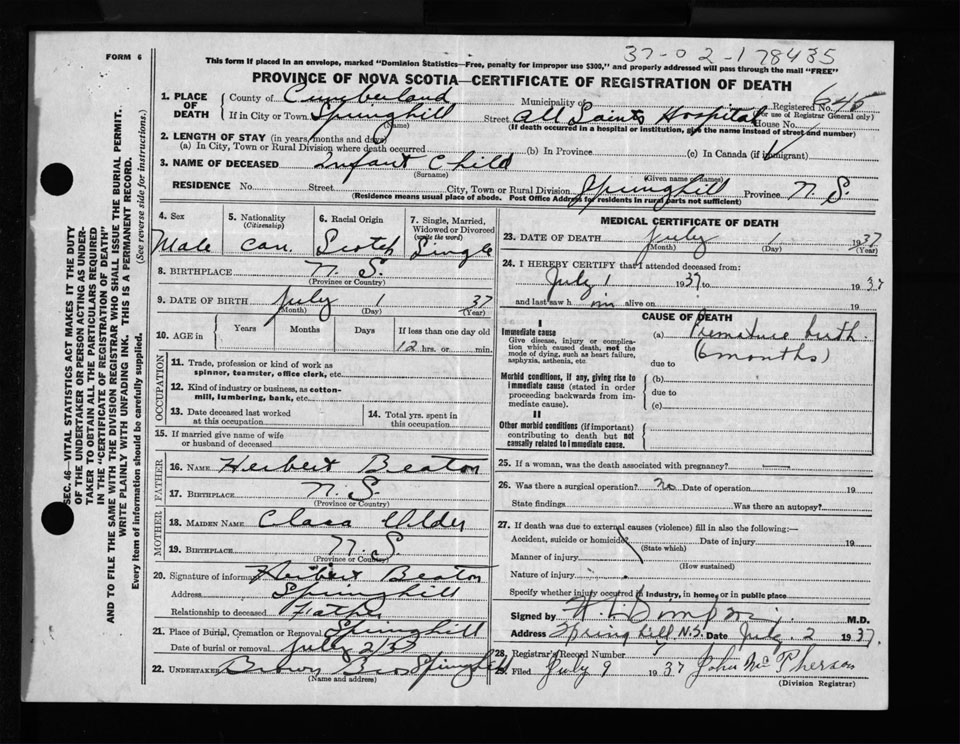 FORM 6
37-02-178435
This form if placed in an envelope, marked "Dominion Statistics—Free, penalty for improper use $300," and properly addressed will pass through the mail "FREE"
PROVINCE OF NOVA SCOTIA—CERTIFICATE OF REGISTRATION OF DEATH
SEC. 46—VITAL STATISTICS ACT MAKES IT THE DUTY
OF THE UNDERTAKER OR PERSON ACTING AS UNDER-
TAKER TO OBTAIN ALL THE PARTICULARS REQUIRED
IN THE "CERTIFICATE OF REGISTRATION OF DEATH"
AND TO FILE THE SAME WITH THE DIVISION REGISTRAR WHO SHALL ISSUE THE BURIAL PERMIT.
WRITE PLAINLY WITH UNFADING INK. THIS IS A PERMANENT RECORD.
Every item of information should be carefully supplied. (See reverse side for instructions.)
1. PLACE OF DEATH
County of Cumberland Municipality of Registered No. 645
(For use of Registrar General only)
If in City or Town Springhill Street All Saints Hospital House No.
(Name) (If death occurred in a hospital or institution, give the name instead of street and number)
2. LENGTH OF STAY (in years, months and days)
(a) In City, Town or Rural Division where death occurred (b) In Province (c) In Canada (if immigrant)
3. NAME OF DECEASED Infant Child
(Surname) (Given name or names)
RESIDENCE No. Street City, Town or Rural Division Springhill Province N. S.
(Residence means usual place of abode. Post Office Address for residents in rural parts not sufficient)
4. Sex Male
5. Nationality (Citizenship) Can.
6. Racial Origin Scotch
7. Single, Married, Widowed or Divorced (write the word) Single
8. BIRTHPLACE N. S.
(Province or Country)
9. DATE OF BIRTH July 1 37
(Month) (Day) (Year)
10. AGE in Years Months Days If less than one day old
12 hrs. or min.
OCCUPATION
11. Trade, profession or kind of work as
spinner, teamster, office clerk, etc.
12. Kind of industry or business, as cotton-
mill, lumbering, bank, etc.
13. Date deceased last worked
at this occupation
14. Total yrs. spent in
this occupation
15. If married give name of wife
or husband of deceased
FATHER
16. NAME Herbert Beaton
17. BIRTHPLACE N. S.
(Province or Country)
MOTHER
18. MAIDEN NAME Clara
19. BIRTHPLACE N. S
(Province or Country)
20. Signature of informant Herbert Beaton
Address Springhill
Relationship to deceased Father
21. Place of Burial, Cremation or Removal Springhill
Date of burial or removal July 2/37
22. UNDERTAKER Brown Bros Springhill
(Name and address)
MEDICAL CERTIFICATE OF DEATH
23. DATE OF DEATH July 1 1937
(Month) (Day) (Year)
24. I HEREBY CERTIFY that I attended deceased from:
July 1 1937 to 1937
and last saw h im alive on 19
CAUSE OF DEATH
I
Immediate cause
Give disease, injury or complica-
tion which caused death, not the
mode of dying, such as heart failure,
asphyxia, asthenia, etc.
(a) Premature birth
(6 months)
due to
Morbid conditions, if any, giving rise to
immediate cause (stated in order
proceeding backwards from im-
mediate cause).
(b)
due to
(c)
II
Other morbid conditions (if important)
contributing to death but not
causally related to immediate cause.
25. If a woman, was the death associated with pregnancy? —
26. Was there a surgical operation? no Date of operation 19
State findings Was there an autopsy?
27. If death was due to external causes (violence) fill in also the following:—
Accident, suicide or homicide? Date of injury 19
(State which)
Manner of injury
(How sustained)
Nature of injury
Specify whether injury occurred in industry, in home, or in public place
Signed by M.D.
Address Springhill N.S. Date July 2 1937.
28. Registrar's Record Number
29. Filed July 9 1937 John McPherson
(Division Registrar)